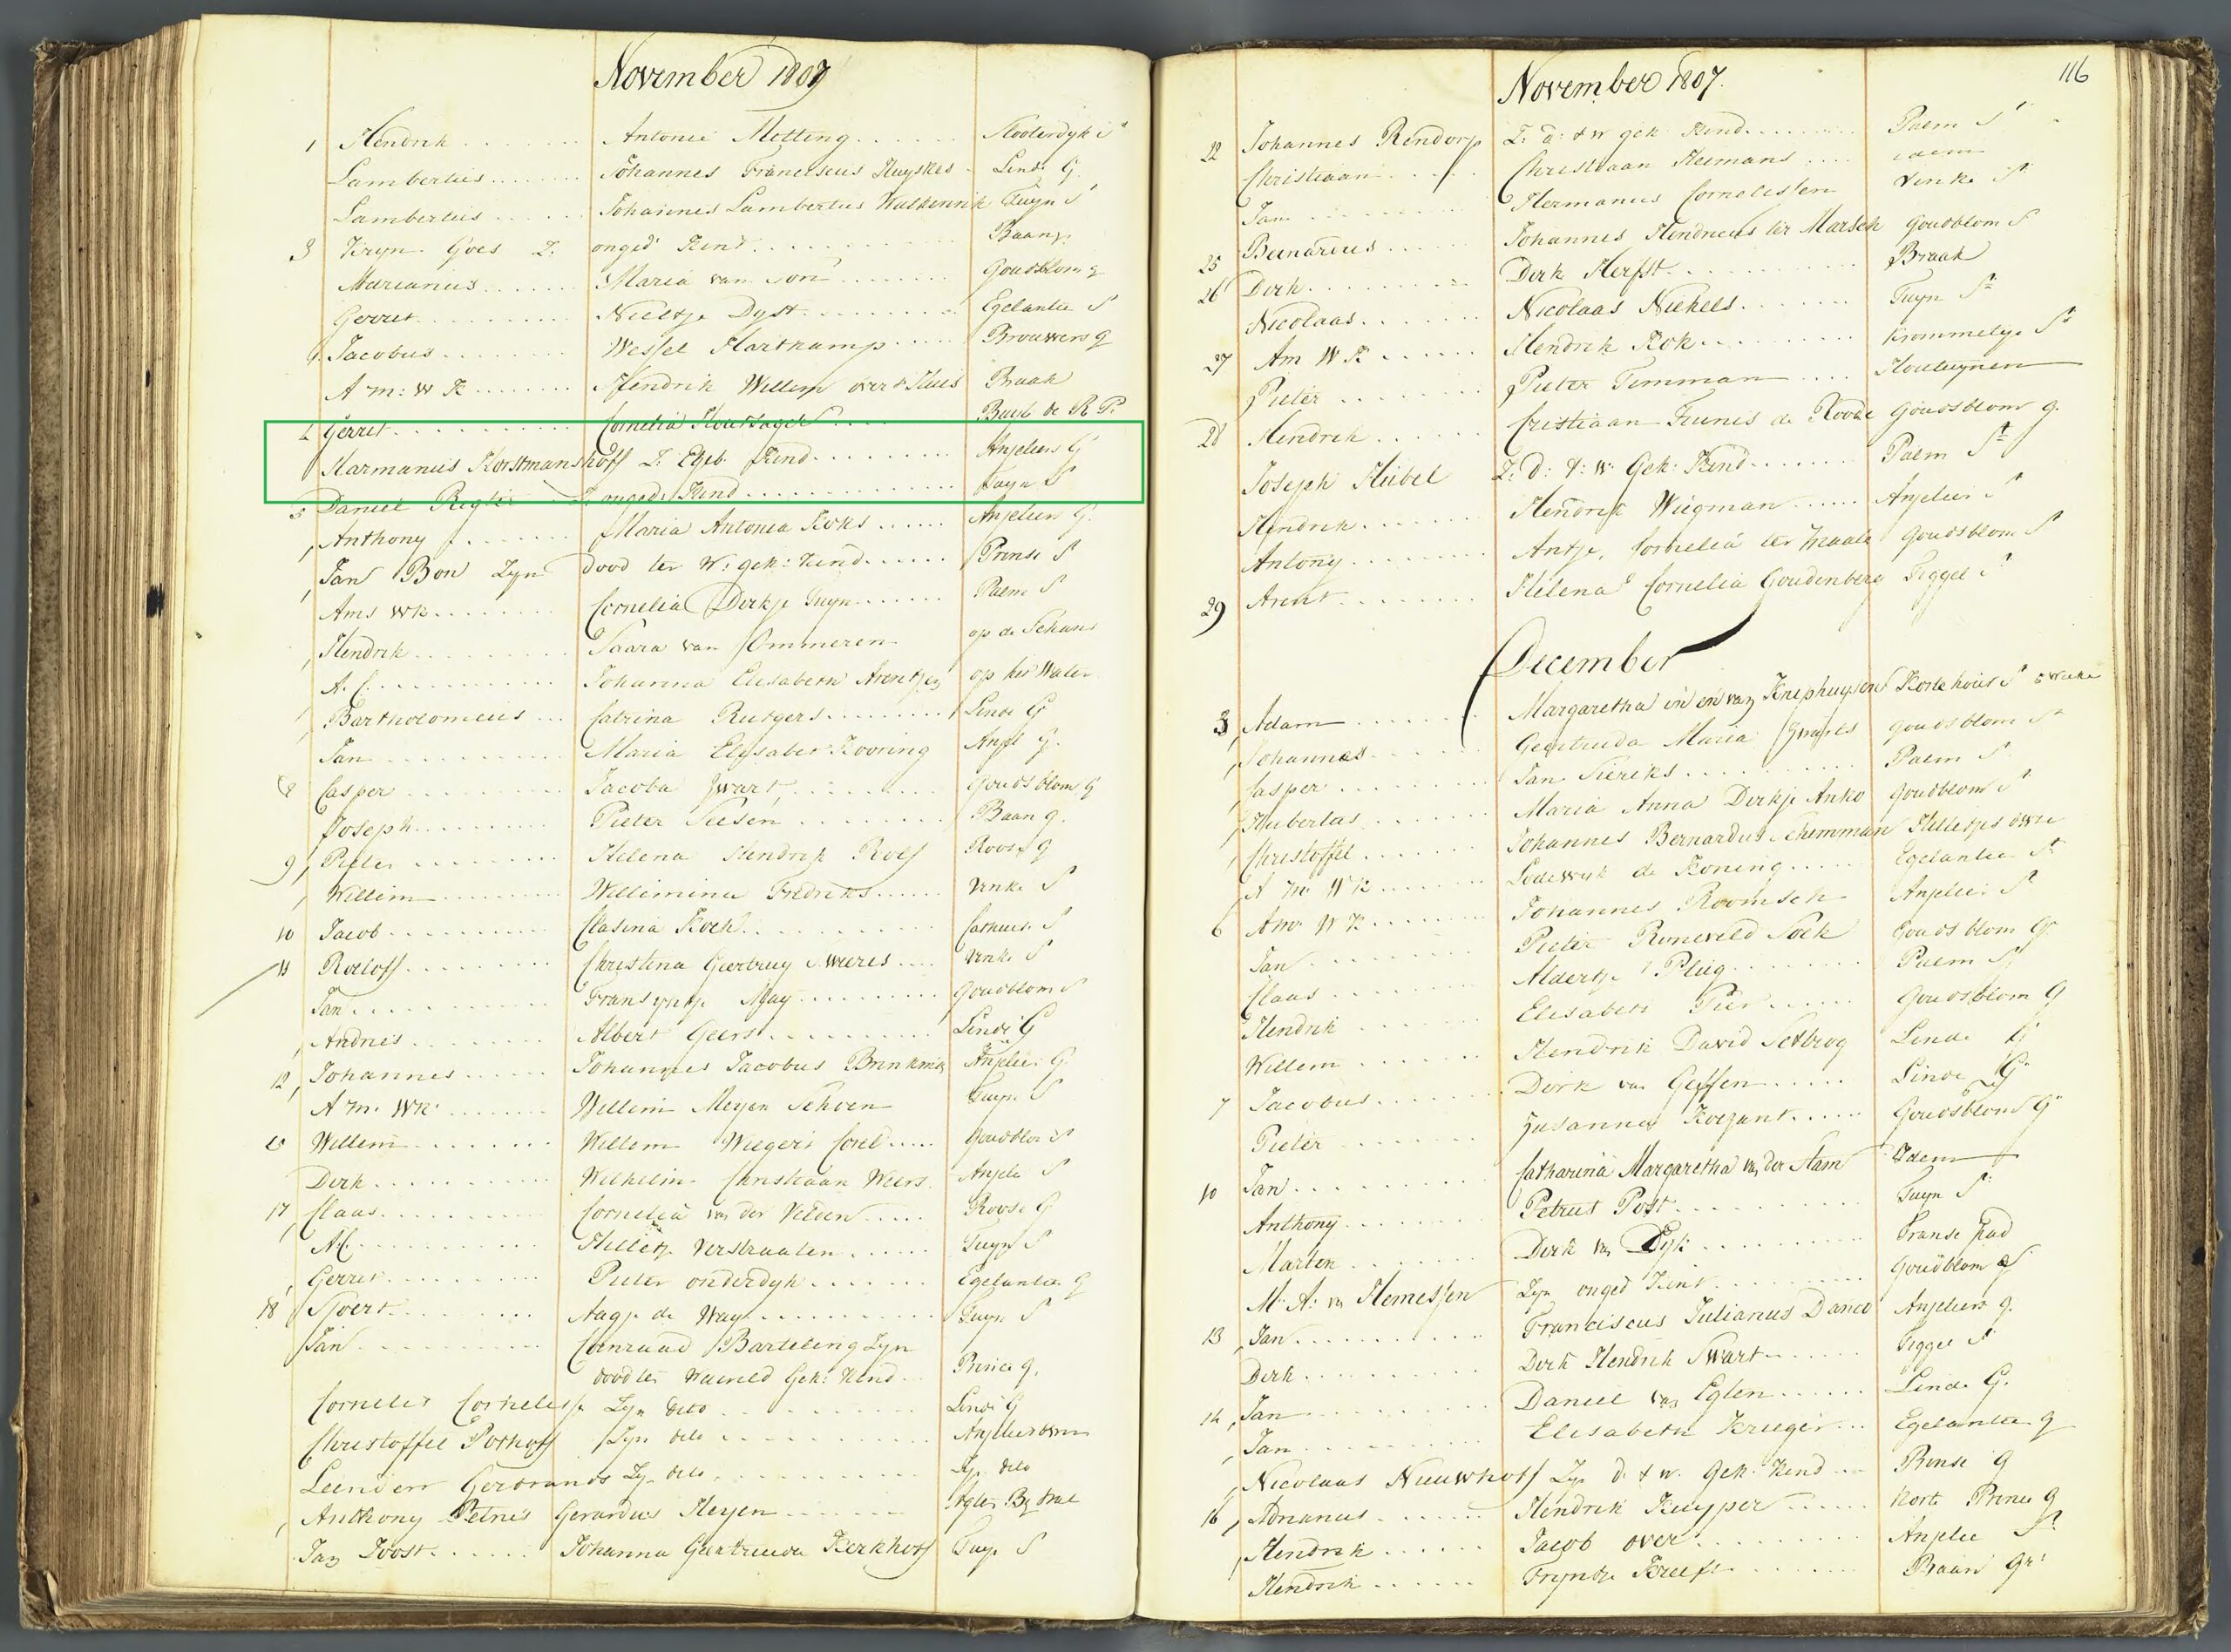 November 1807
1 Hendrik Antonie Motting Slooterdyk S
Lambertus Johannes Franciscus Huyskes Linde G
Lambertus Johannes Lambertus Tuyn S
3 Kryn Goes Z. onged Kind Baang
Marianus Maria van Son Goudsblom g
Gerret Neeltje Dyst Egelantie S
Jacobus Wessel Hartkamp Brouwers g
A m: W K Hendrik Willem Braak
4 Gerret Cornelia Houtsager Buyte de R P:
Harmanus Korstmanshoff Z. Egeb. Kind Anjeliers G
5 Daniel Z. onged. Kind Tuyn S
Anthony Maria Antonia Koks Anjelier G.
Jan Bon Zyn dood ter W: geh: Kind Prinse S
Ams WK Cornelia Derkje Tuyn Palm S
Hendrik Saara van Ommeren op de Schans
A. C. Johanna Elisabeth Arentjen op het Water
Bartholomeus Catrina Rutgers Linde G
Jan Maria Elisabet Kooring Anjel G.
8 Casper Jacoba Zwart Goudsblom G
Joseph Pieter Baan g.
9 Pieter Helena Hendrik Roos g
Willem Willemina Fredriks Vinke S
10 Jacob Clasina Koch Cathuis. S
11 Roelof Christina Geertruy Sweeres Vinke S
Jan Fransyntje May Goudblom S
Andries Albert Geers Linde G
12 Johannes Johannes Jacobus Brinkman Anjelie. G
A m. WK Willem Meyer Schoen Tuyn S
Willem Willem Wiegers Goudblom S
Derk Wilhelm Christiaan Weers Anjelie S
17 Claas Cornelia van der Velden Roose G
AC Hilletje Verstraaten Tuyn S
Gerret Pieter onderdyk Egelantie G
18 Sjoert Aagje de Wayt Tuyn S
Jan Conraad Barteling Zyn
dood ter waereld Geh: Kind Prince g.
Cornelis Cornelisse Zyn dito Linde G
Christoffel Pothoff Zyn dito
Leendert Gerbrands Zyn dito Zyn dito
Anthony Petrus Gerardus Heyen
Jan Joost Johanna Geertruida Kerkhoff Tuyn S
November 1807. 116
22 Johannes Rendorp Z: d: t w geh. Kind Palm S
Christiaan Christiaan Heemans idem
Jan Hermanus Cornelissen Vinke St
25 Bernardus Johannes Hendricus ter Marsch Goudblom S
26 Derk Derk Herfst Braak
Nicolaas Nicolaas Niekels Tuyn St
27 Am W K Hendrik Kok Krommelye St
Pieter Pieter Timman Houtuynen
28 Hendrik Cristiaan Teunis de Roode Goudsblom g.
Joseph Hubel Z: d: t: w: Geh: Kind Palm St
Hendrik Hendrik Wiegman Anjelier St
Antony Antje Cornelia ter Maale Goudsblom S
29 Arent Helena Cornelia Goudenberg Tiggel S
December
3 Adam Margaretha in en van Kniphuysen Korte hout S
Johannes Geertruida Maria Zwartes goudsblom St
Casper Jan Siereks Palm S
Hubertus Maria Anna Derkje Anko Goudblom S
Christoffel Johannes Bernardus Schemman
A m WK Lodewyk de Koning Egelantie St
6 Am W K Johannes Roomsch Anjelie. St
Jan Pieter Goudsblom Gr
Claas Aldertje Pleug Palm S
Hendrik Elisabeth Goudsblom G
Willem Hendrik David Setbrog Linde G
7 Jacobus Derk van Geffen Linde Gr
Pieter Zusanna Goudsblom Gr
10 Jan Catharina Margaretha van der Stam Idem
Anthony Petrus Post Tuyn St
Marten Derk van Dyk Franse Pad
M: A: van Hemessen Zyn onged Kint Goudblom S
13 Jan Franciscus Julianus Anjeliers g.
Derk Derk Hendrik Swart Tigge S
14 Jan Daniel van Eglen Linde G.
Jan Elisabeth Krueger Egelantie g
Nicolaas Nieuwhoff Zyn d. t w. Geh. Kind Prinse G
16 Adrianus Hendrik Kuyper Korte Prince g
Hendrik Jacob over Anjelie St
Hendrik Fryntje Kreeft Baan Gr